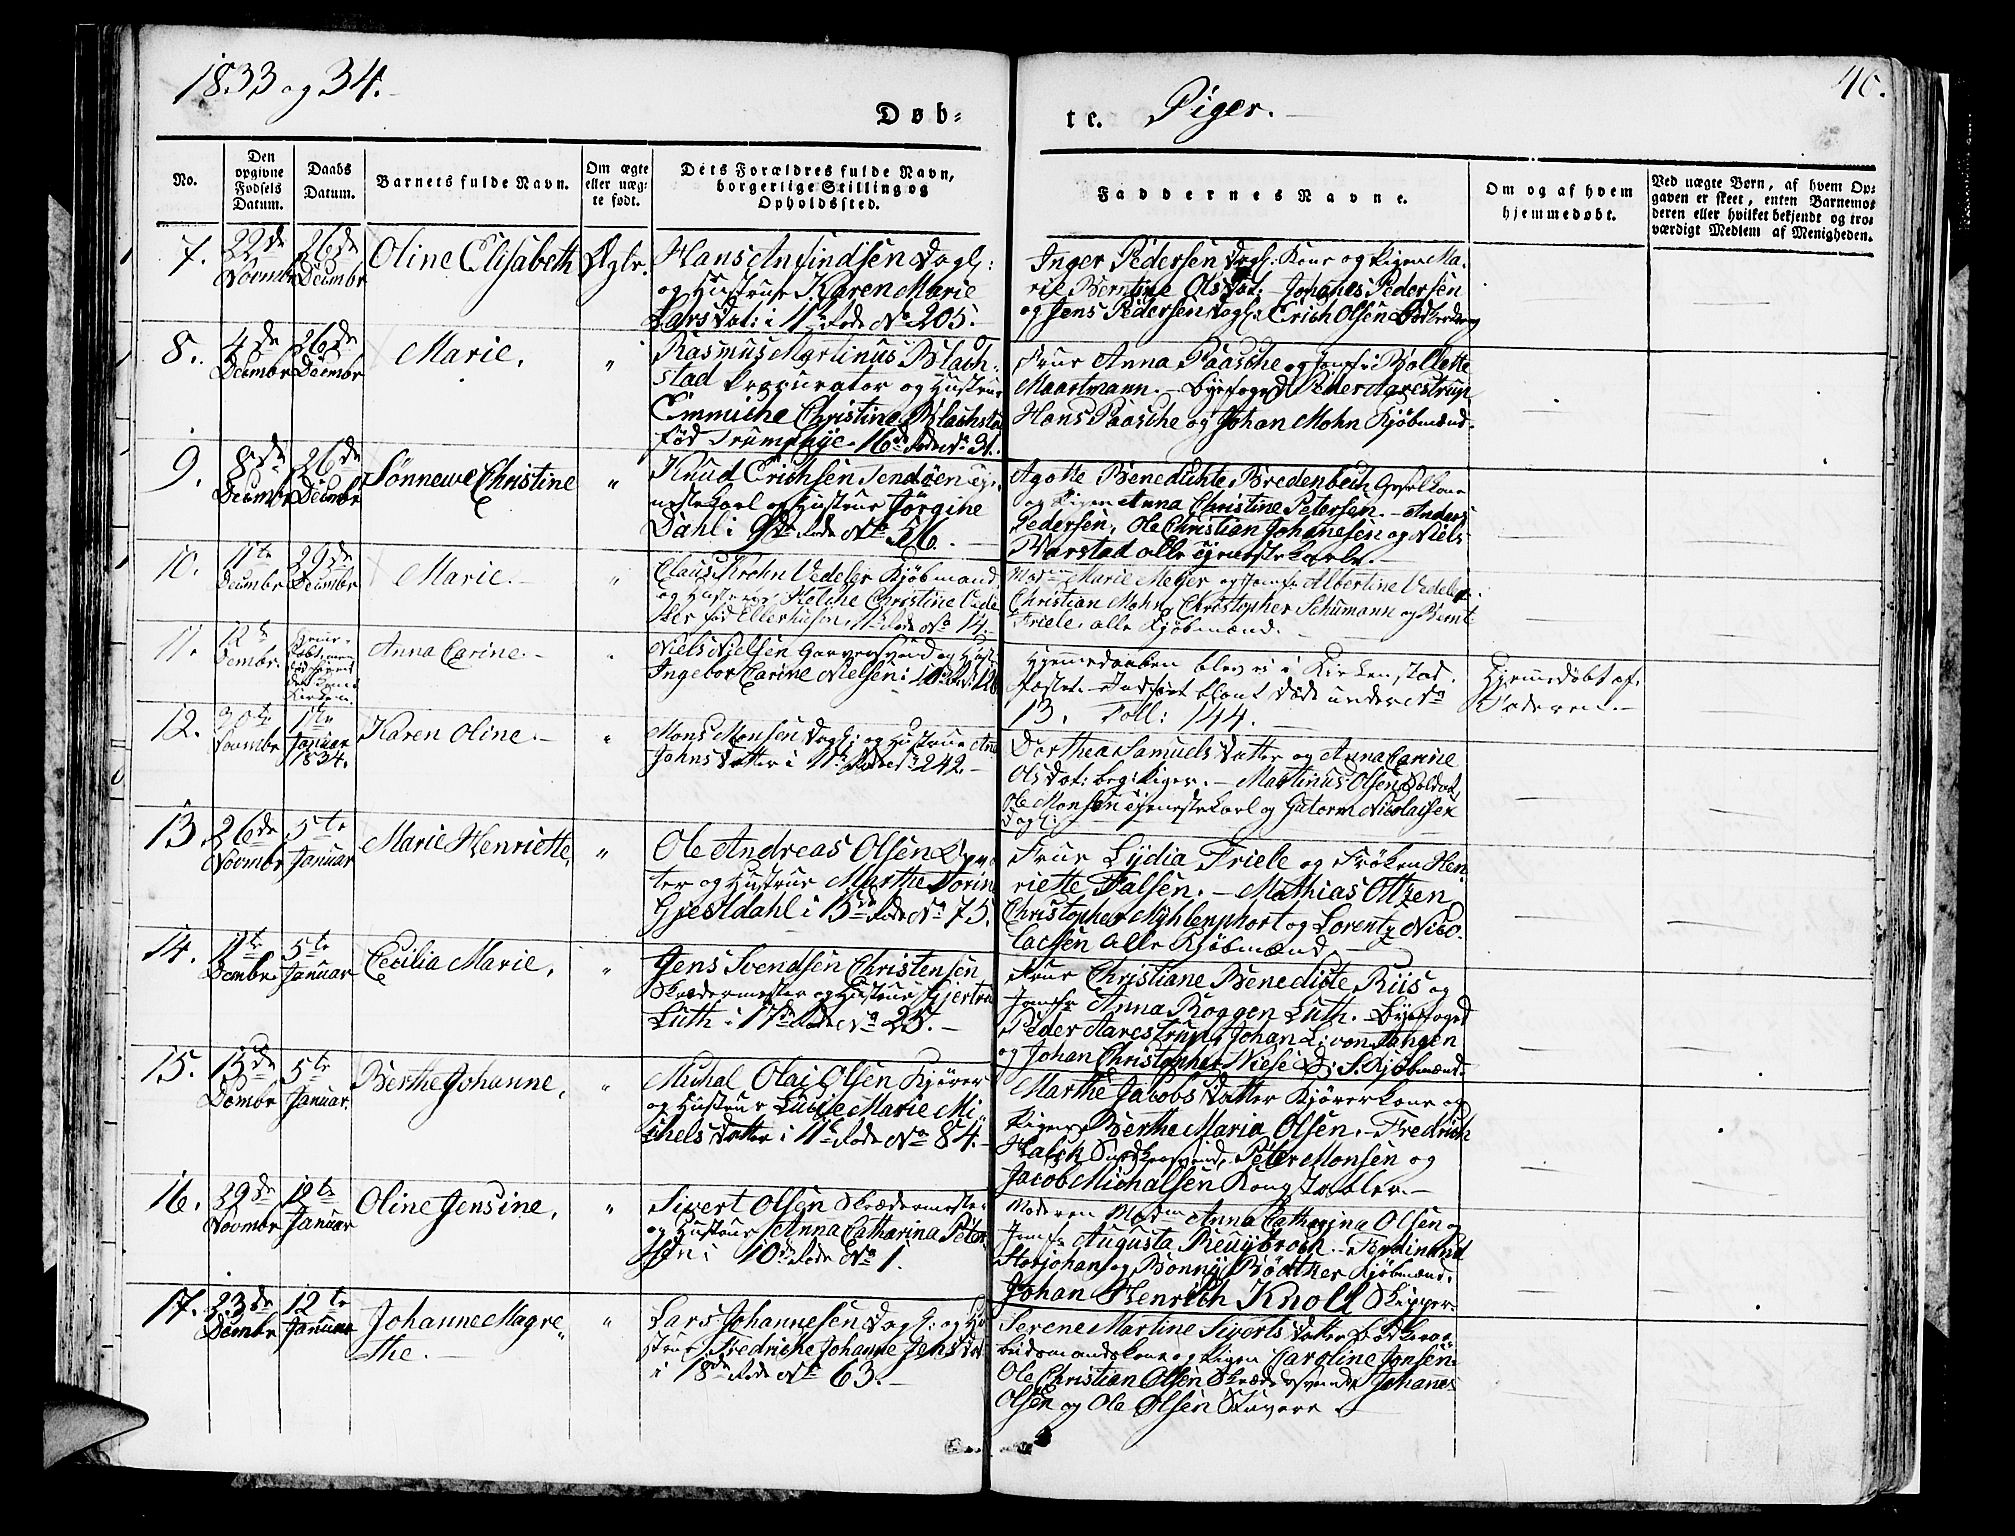 1833 og 34.
Døb-
te. Piger.
40.
No.
Den opgivne Fødsels Datum.
Daabs Datum.
Barnets fulde Navn.
Om ægte eller uæg-te født.
Dets Forældres fulde Navn,
borgerlige Stilling og
Opholdssted.
Faddernes Navne.
Om og af hvem
hjemmedøbt.
Ved uægte Børn, af hvem Op-
gaven er skeet, enten Barnemo-
deren eller hvilket bekjendt og tro-
værdigt Medlem af Menigheden.
7. 22de Novembr 26de Decembr Oline Elisabeth Ægte.
Hans Amundsen Dagl:
og Hustrue Karen Marie
Larsdat: i 11te Rode No 205.
Inger Pedersen Dagl. Kone og Pigen Ma-
rie Berntine Olsdat: Johanes Pedersen
og Jens Pedersen Dagl: Erich Olsen
8. 4de Decembr 26de Decembr Marie. "
Rasmus Martinus Blach-
stad Procurator og Hustrue
Emmiche Christine Blachstad
fød Trumphye. 16de Rode No 31.
Frue Anna Paasche og Jomfr: Bollette
Maartmann. - Byefoged Peder Aarestrup
Hans Paasche og Johan Mohn Kjøbmænd.
9. 8de Decembr 26de Decembr Sønnewe Christine "
Knud Erichsen Tendøen tje-
nestekarl og Hustrue Jørgine
Dahl i 9de Rode No 56.
Agotte Benedichte Bredenbech
og Pigen Anna Christine Petersen. - Anders
Pedersen, Ole Christian Johanesen og Niels
Barstad alle tjenestekarle.
10. 11te Decembr 29de Decembr Marie. "
Claus Krohn Vedeler Kjøbmand
og Hustrue Helche Christine Vede-
ler fød Ellerhusen, No 14.
Madm Marie Meyer og Jomfr Albertine Vedeler.
Christian Mohn, Christopher Schumann og Bernt
Friele, alle Kjøbmænd.
11. 12te Decembr. Anna Carine.
Niels Nielsen Garversvend og Hust:
Ingebor Carine Nielsen i 20de Rode No 120
Hjemmedaaben blev ei i Kirken stad-
fæstet. - Indført blant Døde under No
13. Foll: 144.
Hjemmedøbt af
Faderen.
12. 30te Novembr 1te Januar 1834. Karen Oline. "
Mons Monsen Dagl: og Hustrue Ane
Johnsdatter i 11te Rode No 242.
Dorthea Samuelsdatter og Anna Carine
Olsdat: beg: Piger. - Martinus Olsen Soldat,
Ole Monsen tjenestekarl og Gutorm Nicolaisen
Dagl:
13. 26de Novembr 5te Januar Marie Henriette, "
Ole Andreas Olsen
og Hustrue Marthe Torine
Gjesdahl i 15de Rode No 75.
Frue Lydia Friele og Frøken Hen-
riette Falsen. - Mathias Ottzen,
Christopher Myhlenphort og Lorentz Nico-
laisen alle Kjøbmænd.
14. 11te Dcmbr. 5te Januar Cecilia Marie, "
Jens Svendsen Christensen
Skrædermester og Hustrue Gjertru
Luth i 17de Rode No 25.
Frue Christiane Benedicte Riis og
Jomfr Anna Roggen Luth. - Byefoged
Peder Aarestrup, Johan L: von Tangen
og Johan Christopher Wiese D: S: Kjøbmænd.
15. 13de Dcmbr 5te Januar. Berthe Johanne, "
Michal Olai Olsen Kjører
og Hustrue Lucie Marie Mi-
chelsdatter i 11te Rode No 84.
Marthe Jacobsdatter Kjørerkone og
Pigen Berthe Maria Olsen. - Fredrich
Halck, Peter Monsen og
Jacob Michalsen Kongstabler.
16. 29de Novmbr 12te Januar Oline Jensine, "
Sivert Olsen Skrædermester
og Hustrue Anna Catharina Peter-
sen i 10de Rode No 1.
Moderen Madm Anna Catharina Olsen og
Jomfr Augusta Pieuybroch. - Ferdinand
Storjohan og Bonny Bødtker Kjøbmænd,
Johan Henrich Knold Skipper.
17. 23de Dcmbr 12te Januar Johanne Magre-
the.
"
Lars Johannesen Dagl: og Hu-
strue Fredriche Johanne Jensdat
i 18de Rode No 63.
Serene Martine Sivertsdatter
og Pigen Caroline Jonsen
Ole Christian Olsen Skrædersvend, Johanes
Olsen og Ole Olsen